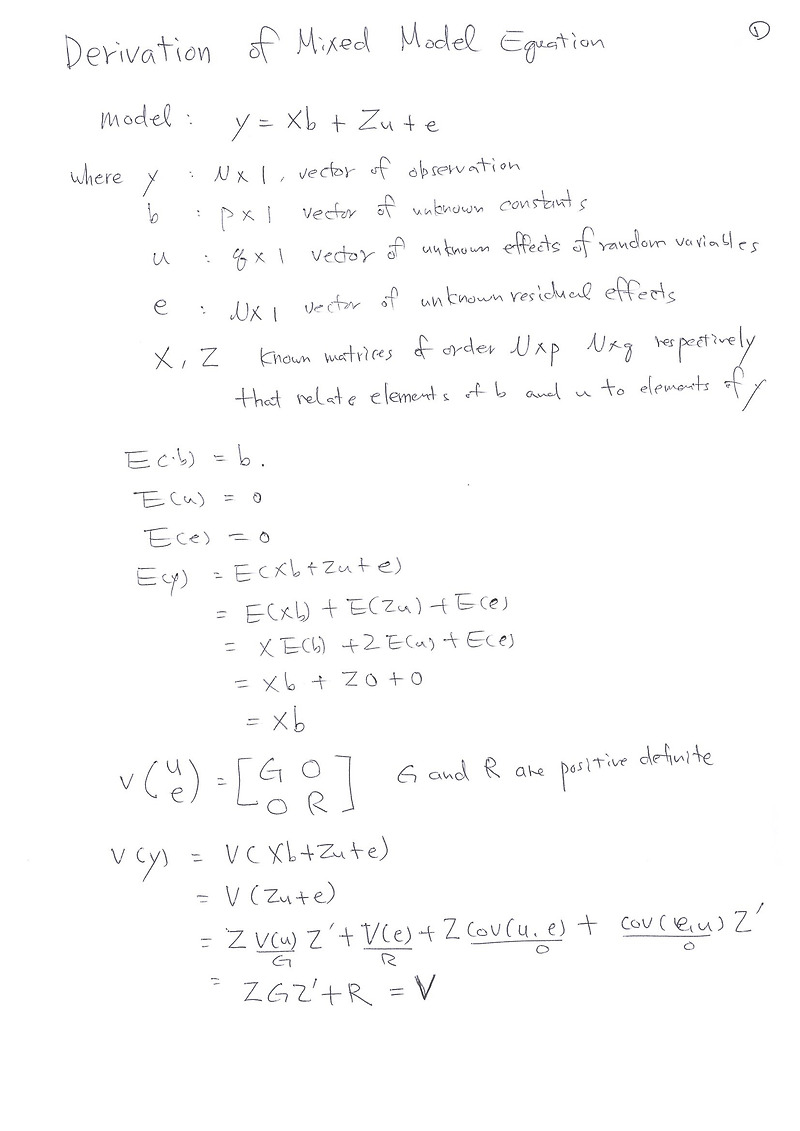 ①
Derivation of Mixed Model Equation
model : y = Xb + Zu + e
where y : N x 1, vector of observation
b : p x 1 vector of unknown constants
u : q x 1 vector of unknown effects of random variables
e : N x 1 vector of unknown residual effects
X, Z Known matrices of order N x p N x q respectively
that relate elements of b and u to elements of y
E(b) = b.
E(u) = 0
E(e) = 0
E(y) = E(Xb + Zu + e)
= E(Xb) + E(Zu) + E(e)
= X E(b) + Z E(u) + E(e)
= Xb + Z0 + 0
= Xb
V(u e) = [G 0
0 R] G and R are positive definite
V(y) = V(Xb + Zu + e)
= V(Zu + e)
= Z V(u) Z' + V(e) + Z cov(u, e) + cov(e, u) Z'
G R 0 0
= ZGZ' + R = V